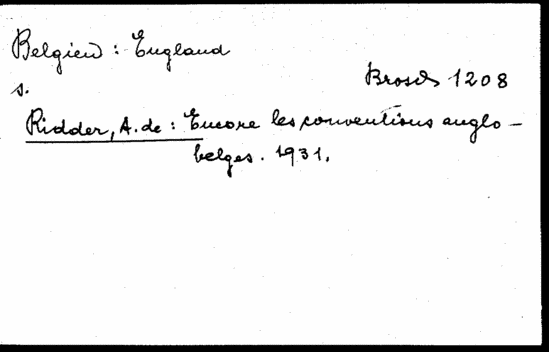 Belgien : England
Brosch 1208
s.
Ridder, A. de : Encore les conventions anglo-
belges. 1931.